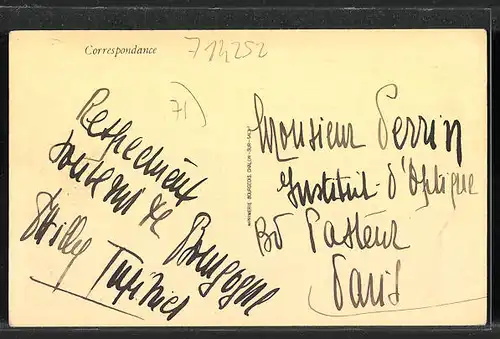 Correspondance
714252
71)
Respectueux
souvenir de
Bourgogne
Willy
Monsieur Perrin
Institut d'Optique
Bd Pasteur
Paris
IMPRIMERIE BOURGEOIS, CHALON-SUR-SAÔNE